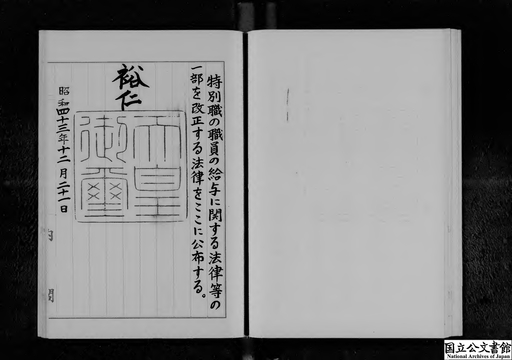 特別職の職員の給与に関する法律等の
一部を改正する法律をここに公布する。
裕仁
天皇
御璽
昭和四十三年十二月二十一日
国立公文書館
National Archives of Japan